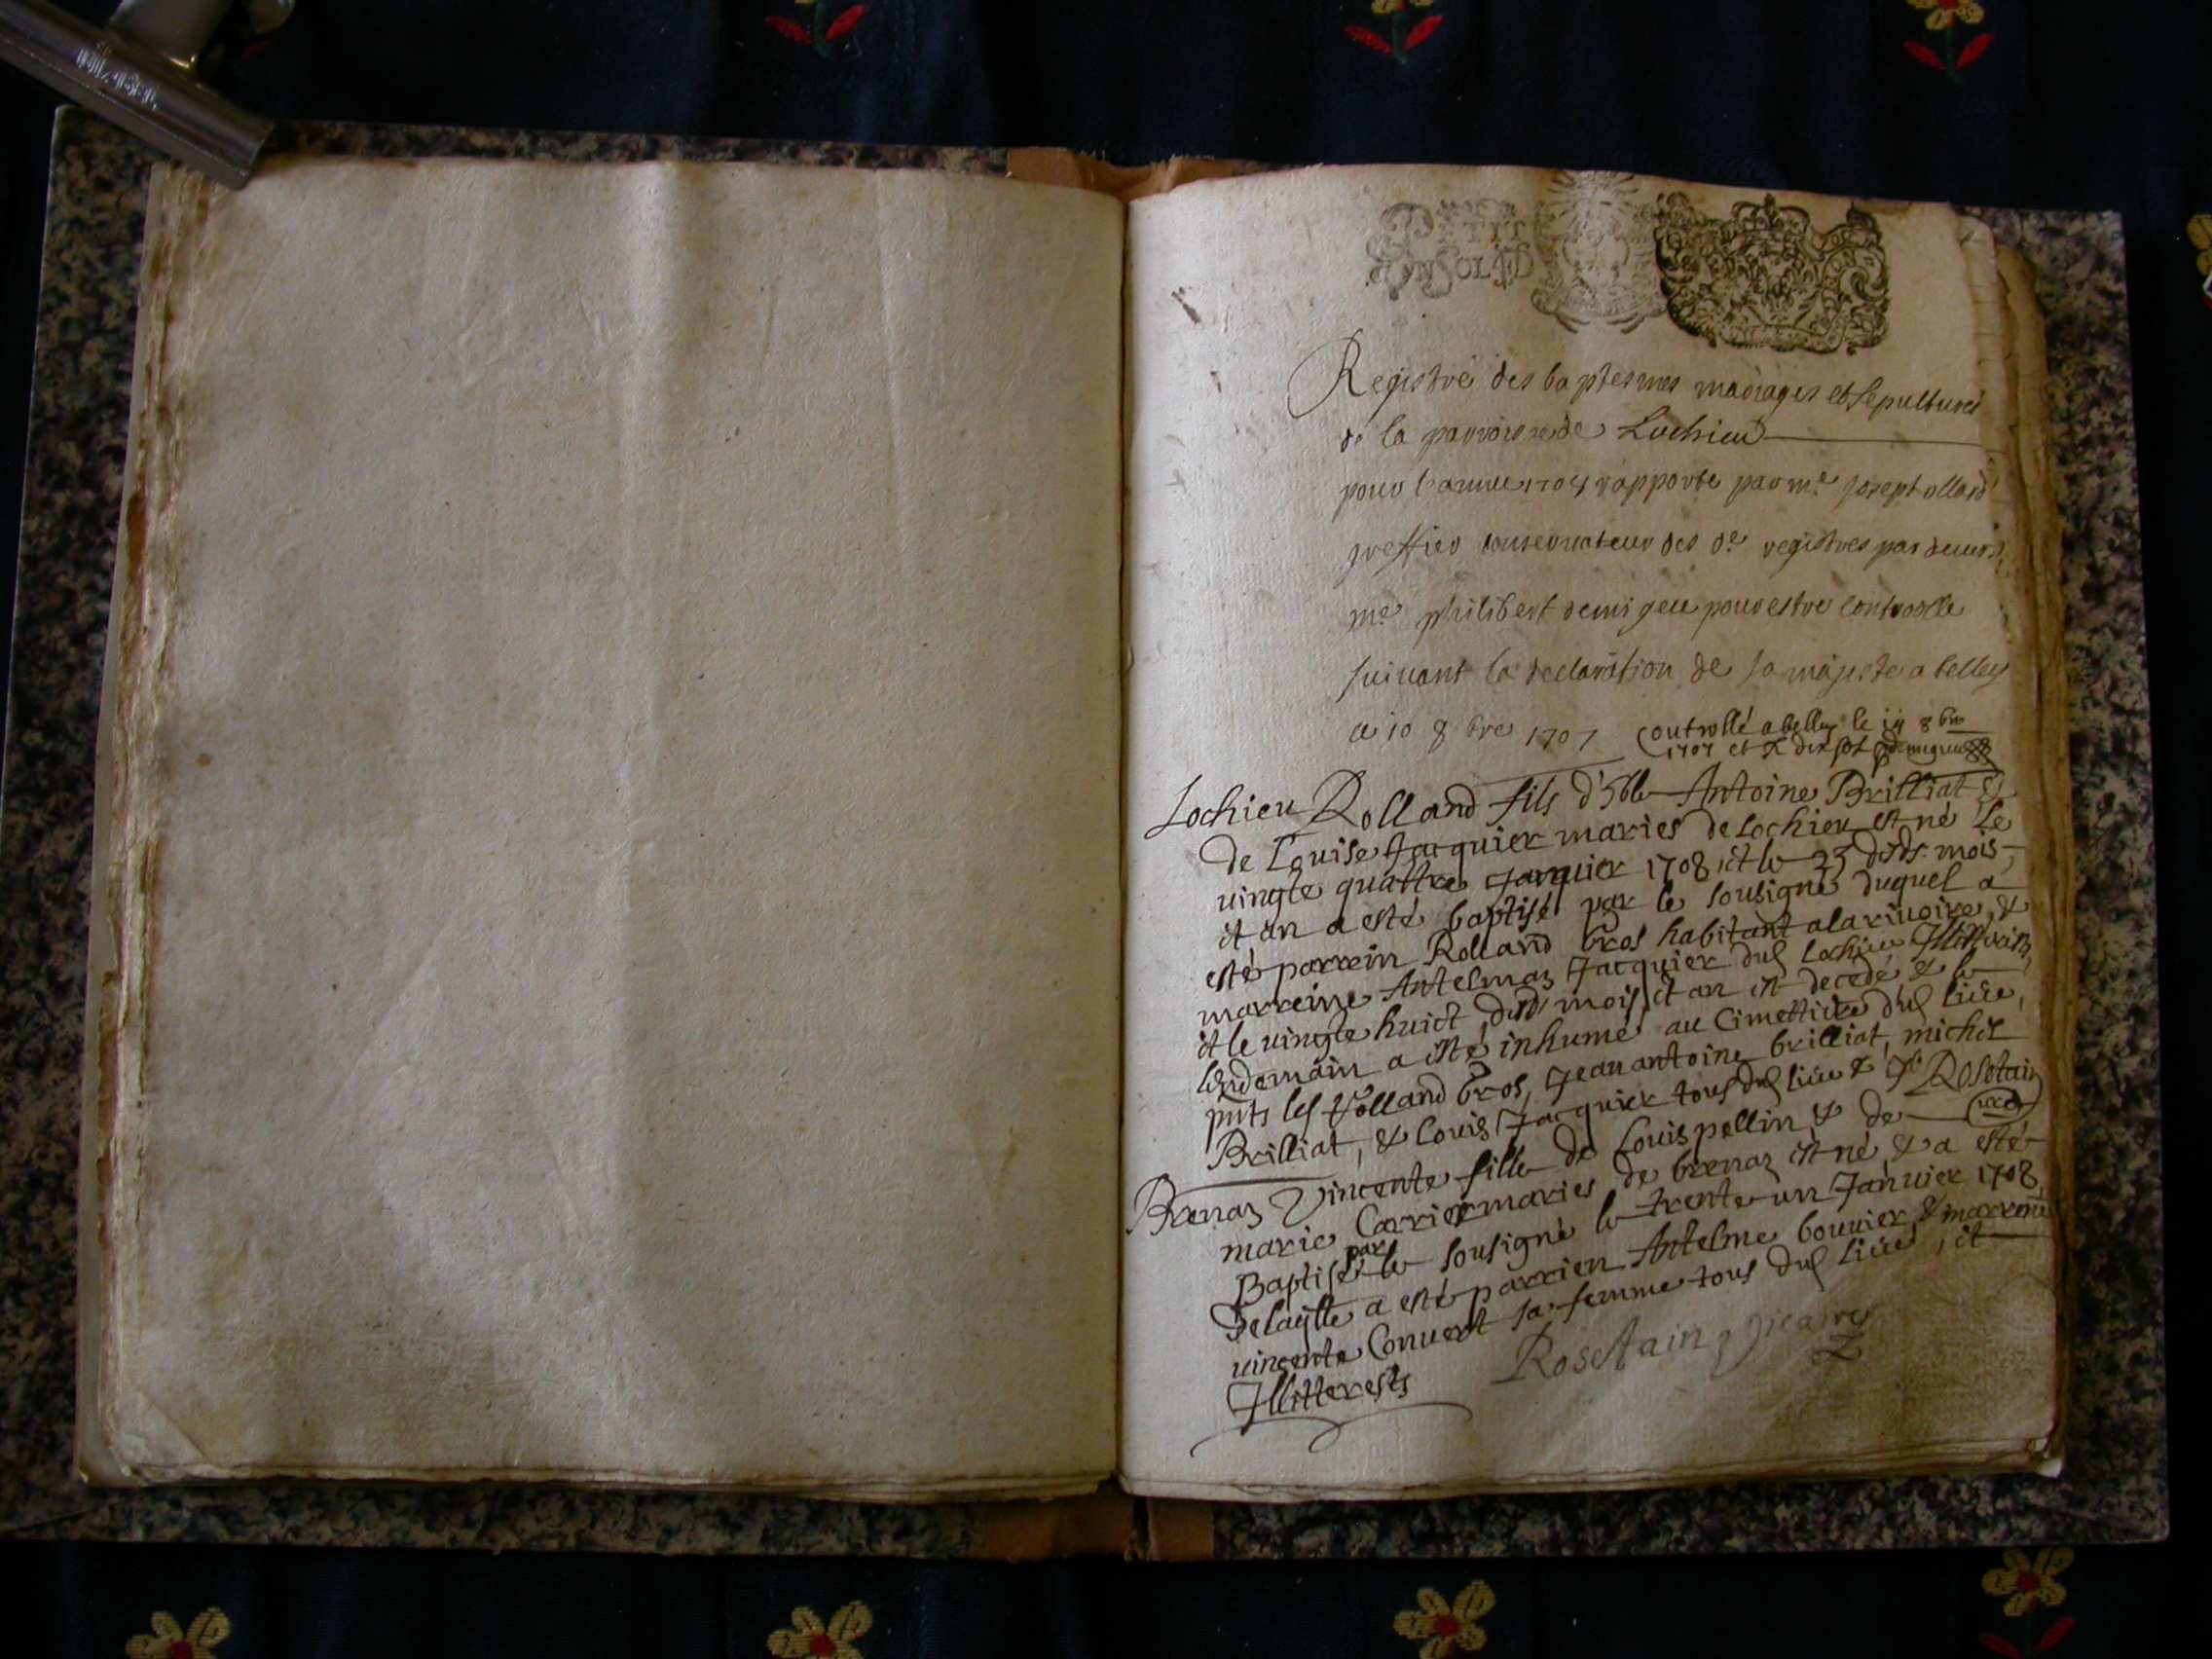 PETIT
UN SOL
Registre des baptesmes mariages et sepultures
de la parroisse de Lochieu
pour l'annee rapporte par me Joseph ollard
greffier conservateur des de registres par devant
me philibert demigeu pour estre controolle
suivant la declaration de sa majeste a belley
ce 10 8bre 1707 Controllé a belley le 8bre
1707 et R dix sols demigeu
Lochieu Rolland fils d'hble Antoine Brilliat &
de Louise Jacquier maries de Lochieu est né le
vingte quattre Janvier 1708 et le 25 dudt mois
et an a esté baptisé par le sousigné duquel a
esté parrein Rolland Gros habitant a la rivoire, &
marreine Antelmaz Jacquier dud Lochieu Illitterés,
et le vingte huict dudt mois et an est decedé & le
lendemain a esté inhumé au Cimettiere dud lieu,
pnts les Rolland Gros, Jean antoine brilliat, michel
Brilliat, & Louis Jacquier tous dud lieu & Rosetain
Brenaz Vincente fille de Louis pellin & de
marie Carrier maries de brenaz est né & a esté
Baptisé par le sousigné le trente un Janvier 1708
De laqlle a esté parrien Antelme bouvier & marreine
vincente Convert sa femme tous dud lieu, et
Illitterests Rosetain, vicaire